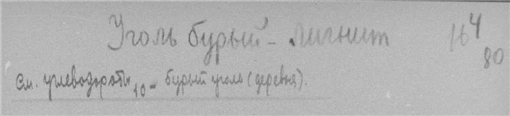 Уголь бурый - Лигнит 16 4
80
См. углеводороды 10 - бурый уголь (деревья).